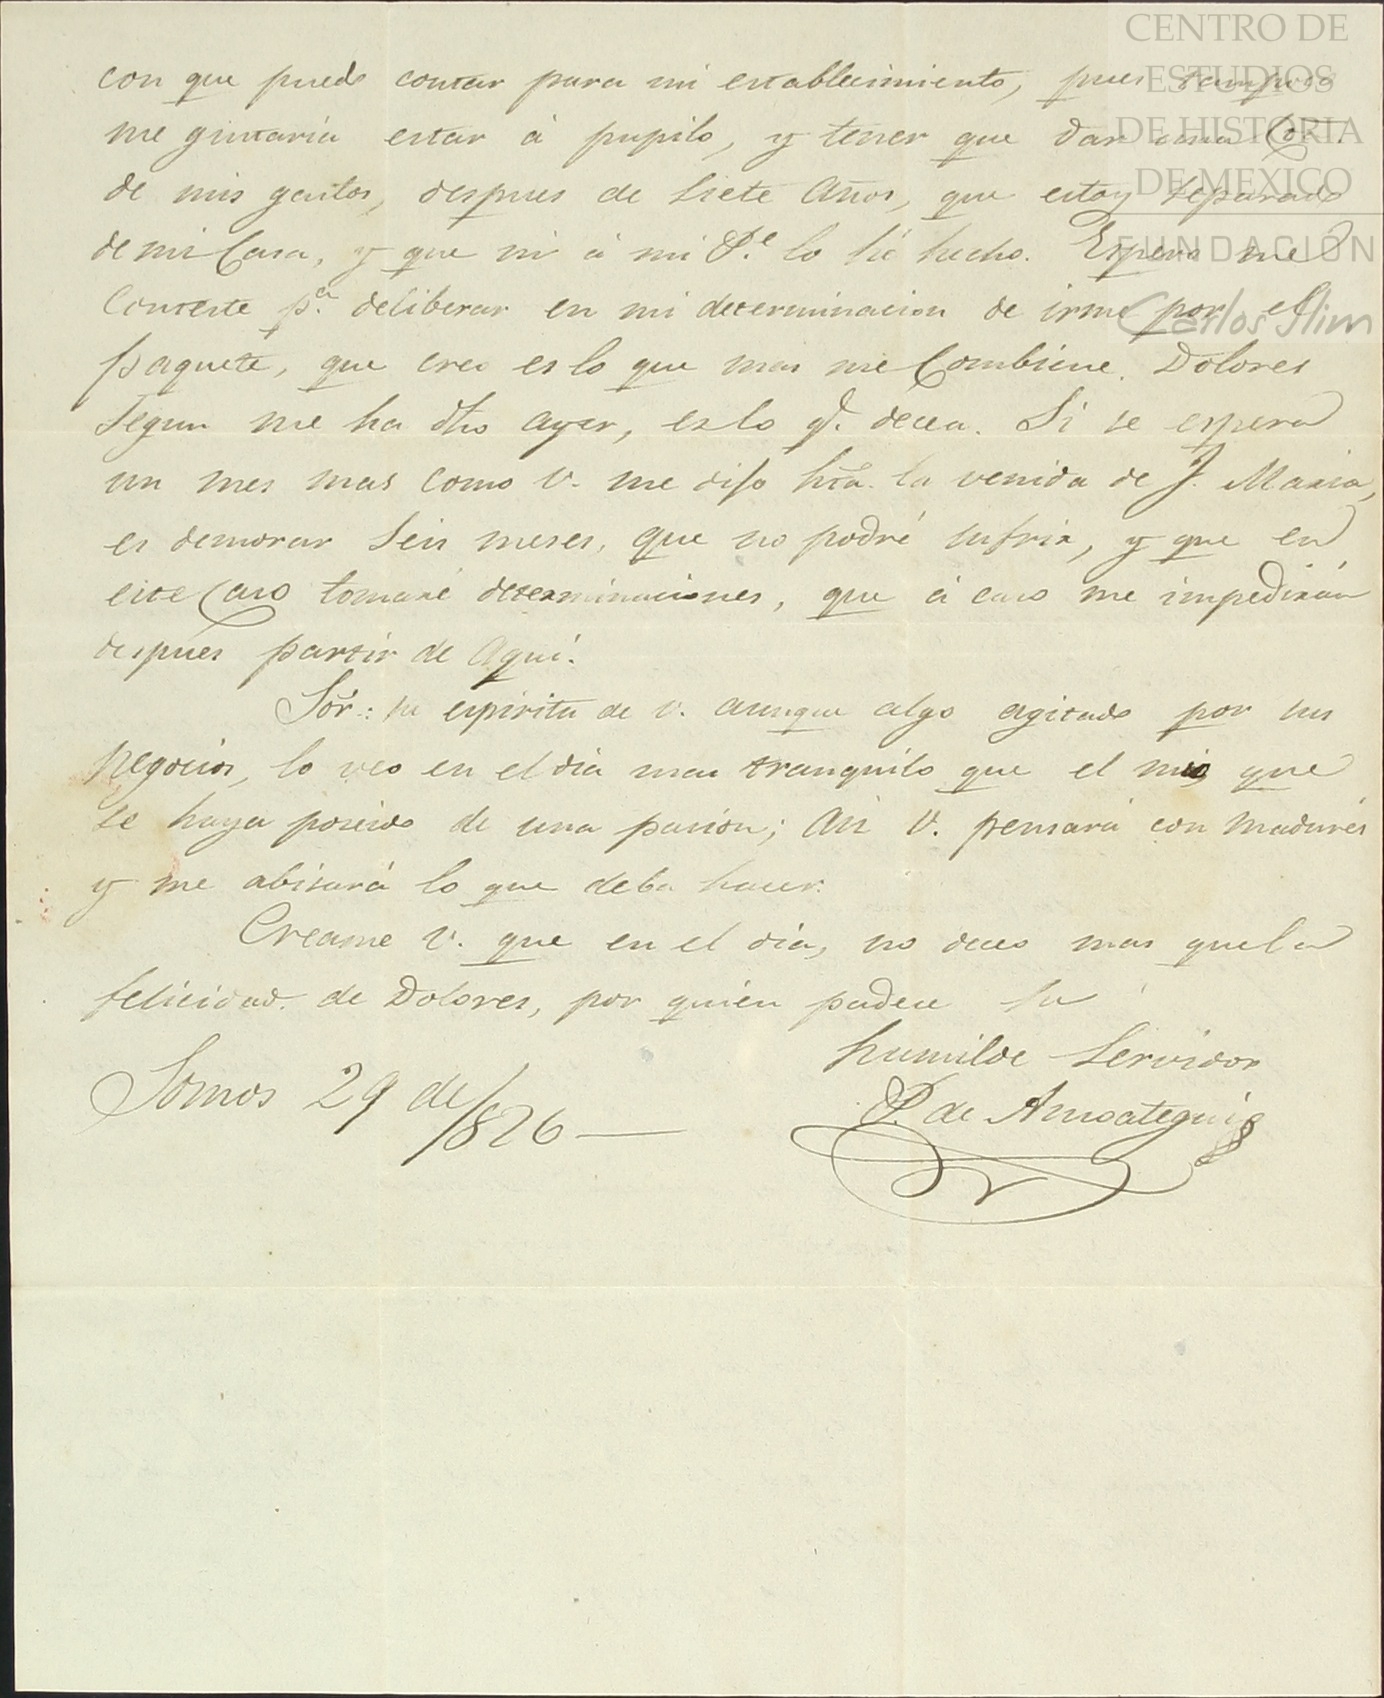 CENTRO DE
ESTUDIOS
DE HISTORIA
DE MEXICO
FUNDACIÓN
Carlos Slim
con que puedo contar para mi establecimiento, pues tampoco
me gustaria estar á pupilo, y tener que dar una
de mis gastos, despues de siete años, que estoy separado
de mi Casa, y que ni á mi P.e lo hé hecho. Espero me
Conteste p.a deliberar en mi determinacion de irme por el
paquete, que creo es lo que mas me Combiene. Dolores
segun me ha dho ayer, es lo q.e decea. Si se espera
un mes mas como V. me dijo hta. la venida de J. Maria,
es demorar seis meses, que no podré sufrir, y que en
este Caso tomaré determinaciones, que á caso me impedirán
despues partir de Aquí.
Sor.: su espiritu de V. aunque algo agitado por sus
negocios, lo veo en el dia mas tranquilo que el mio, que
se haya poseido de una pasion; Asi V. pensará con madures
y me abisará lo que deba hacer.
Creame V. que en el dia, no deceo mas que la
felicidad de Dolores, por quien padece su
humilde Servidor
P. de Amoategui
Somos 29 de/826—